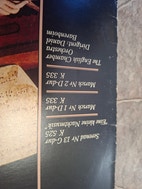 Serenad Nr 13 G-dur
K 525
"Eine kleine Nachtmusik"
Marsch Nr 1 D-dur
K 335
Marsch Nr 2 D-dur
K 335
The English Chamber
Orchestra
Dirigent: Daniel
Barenboim